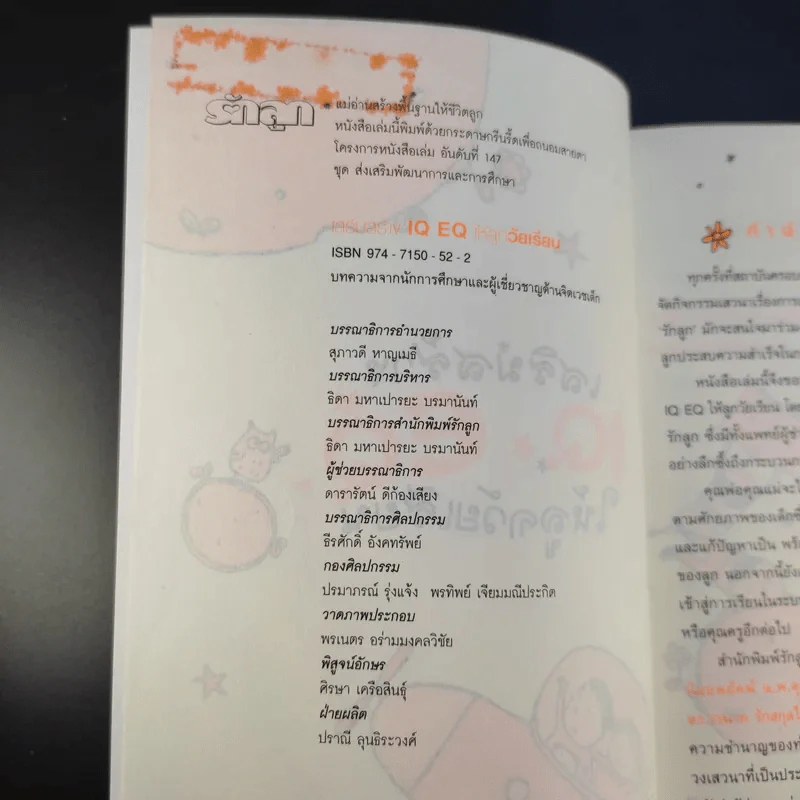 รักลูก
แม่อ่านสร้างพื้นฐานให้ชีวิตลูก
หนังสือเล่มนี้พิมพ์ด้วยกระดาษกรีนรี้ดเพื่อถนอมสายตา
โครงการหนังสือเล่ม อันดับที่ 147
ชุด ส่งเสริมพัฒนาการและการศึกษา
เสริมสร้าง IQ EQ ให้ลูกวัยเรียน
ISBN 974 - 7150 - 52 - 2
บทความจากนักการศึกษาและผู้เชี่ยวชาญด้านจิตเวชเด็ก
บรรณาธิการอำนวยการ
สุภาวดี หาญเมธี
บรรณาธิการบริหาร
ธิดา มหาเปารยะ บรมานันท์
บรรณาธิการสำนักพิมพ์รักลูก
ธิดา มหาเปารยะ บรมานันท์
ผู้ช่วยบรรณาธิการ
ดารารัตน์ ดีก้องเสียง
บรรณาธิการศิลปกรรม
ธีรศักดิ์ อังคทรัพย์
กองศิลปกรรม
ปรมาภรณ์ รุ่งแจ้ง พรทิพย์ เจียมมณีประกิต
วาดภาพประกอบ
พรเนตร อร่ามมงคลวิชัย
พิสูจน์อักษร
ศิรษา เครือสินธุ์
ฝ่ายผลิต
ปราณี ลุนธิระวงศ์
ทุกครั้งที่สถาบันครอบ
จัดกิจกรรมเสวนาเรื่องการ
'รักลูก' มักจะสนใจมาร่วม
ลูกประสบความสำเร็จใน
หนังสือเล่มนี้จึงของ
IQ EQ ให้ลูกวัยเรียน โดย
รักลูก ซึ่งมีทั้งแพทย์ผู้
อย่างลึกซึ้งถึงกระบวน
คุณพ่อคุณแม่จะ
ตามศักยภาพของเด็ก
และแก้ปัญหาเป็น
ของลูก นอกจากนี้ยัง
เข้าสู่การเรียนในระบบ
หรือคุณครูอีกต่อไป
สำนักพิมพ์รักลู
ความชำนาญของ
วงเสวนาที่เป็นประ